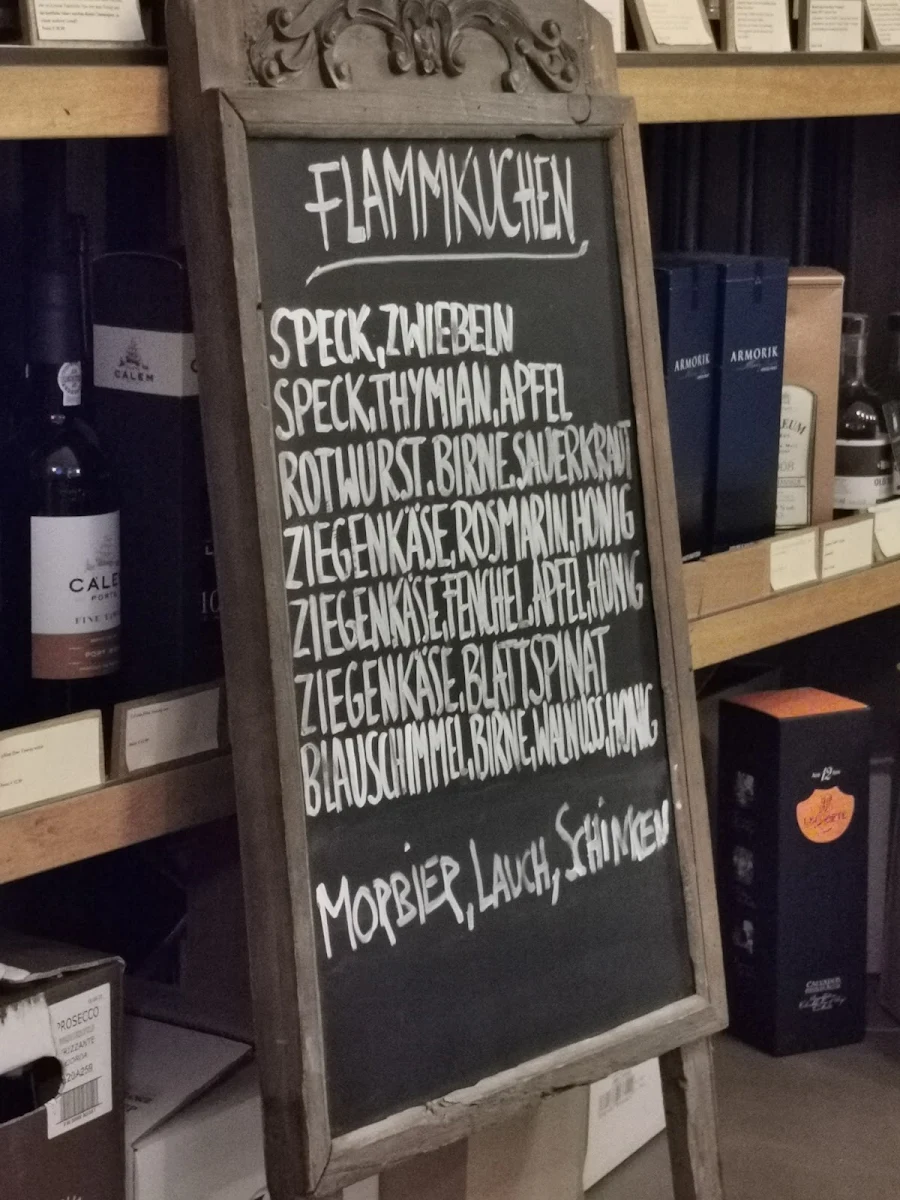 FLAMMKUCHEN
SPECK, ZWIEBELN
SPECK, THYMIAN, APFEL
ROTWURST, BIRNE, SAUERKRAUT
ZIEGENKÄSE, ROSMARIN, HONIG
ZIEGENKÄSE, FENCHEL, APFEL, HONIG
ZIEGENKÄSE, BLATTSPINAT
BLAUSCHIMMEL, BIRNE, WALNUSS, HONIG
MORBIER, LAUCH, SCHINKEN
CALEM
CALE
PORTO
FINE
10
ARMORIK
ARMORIK
12
PROSECCO